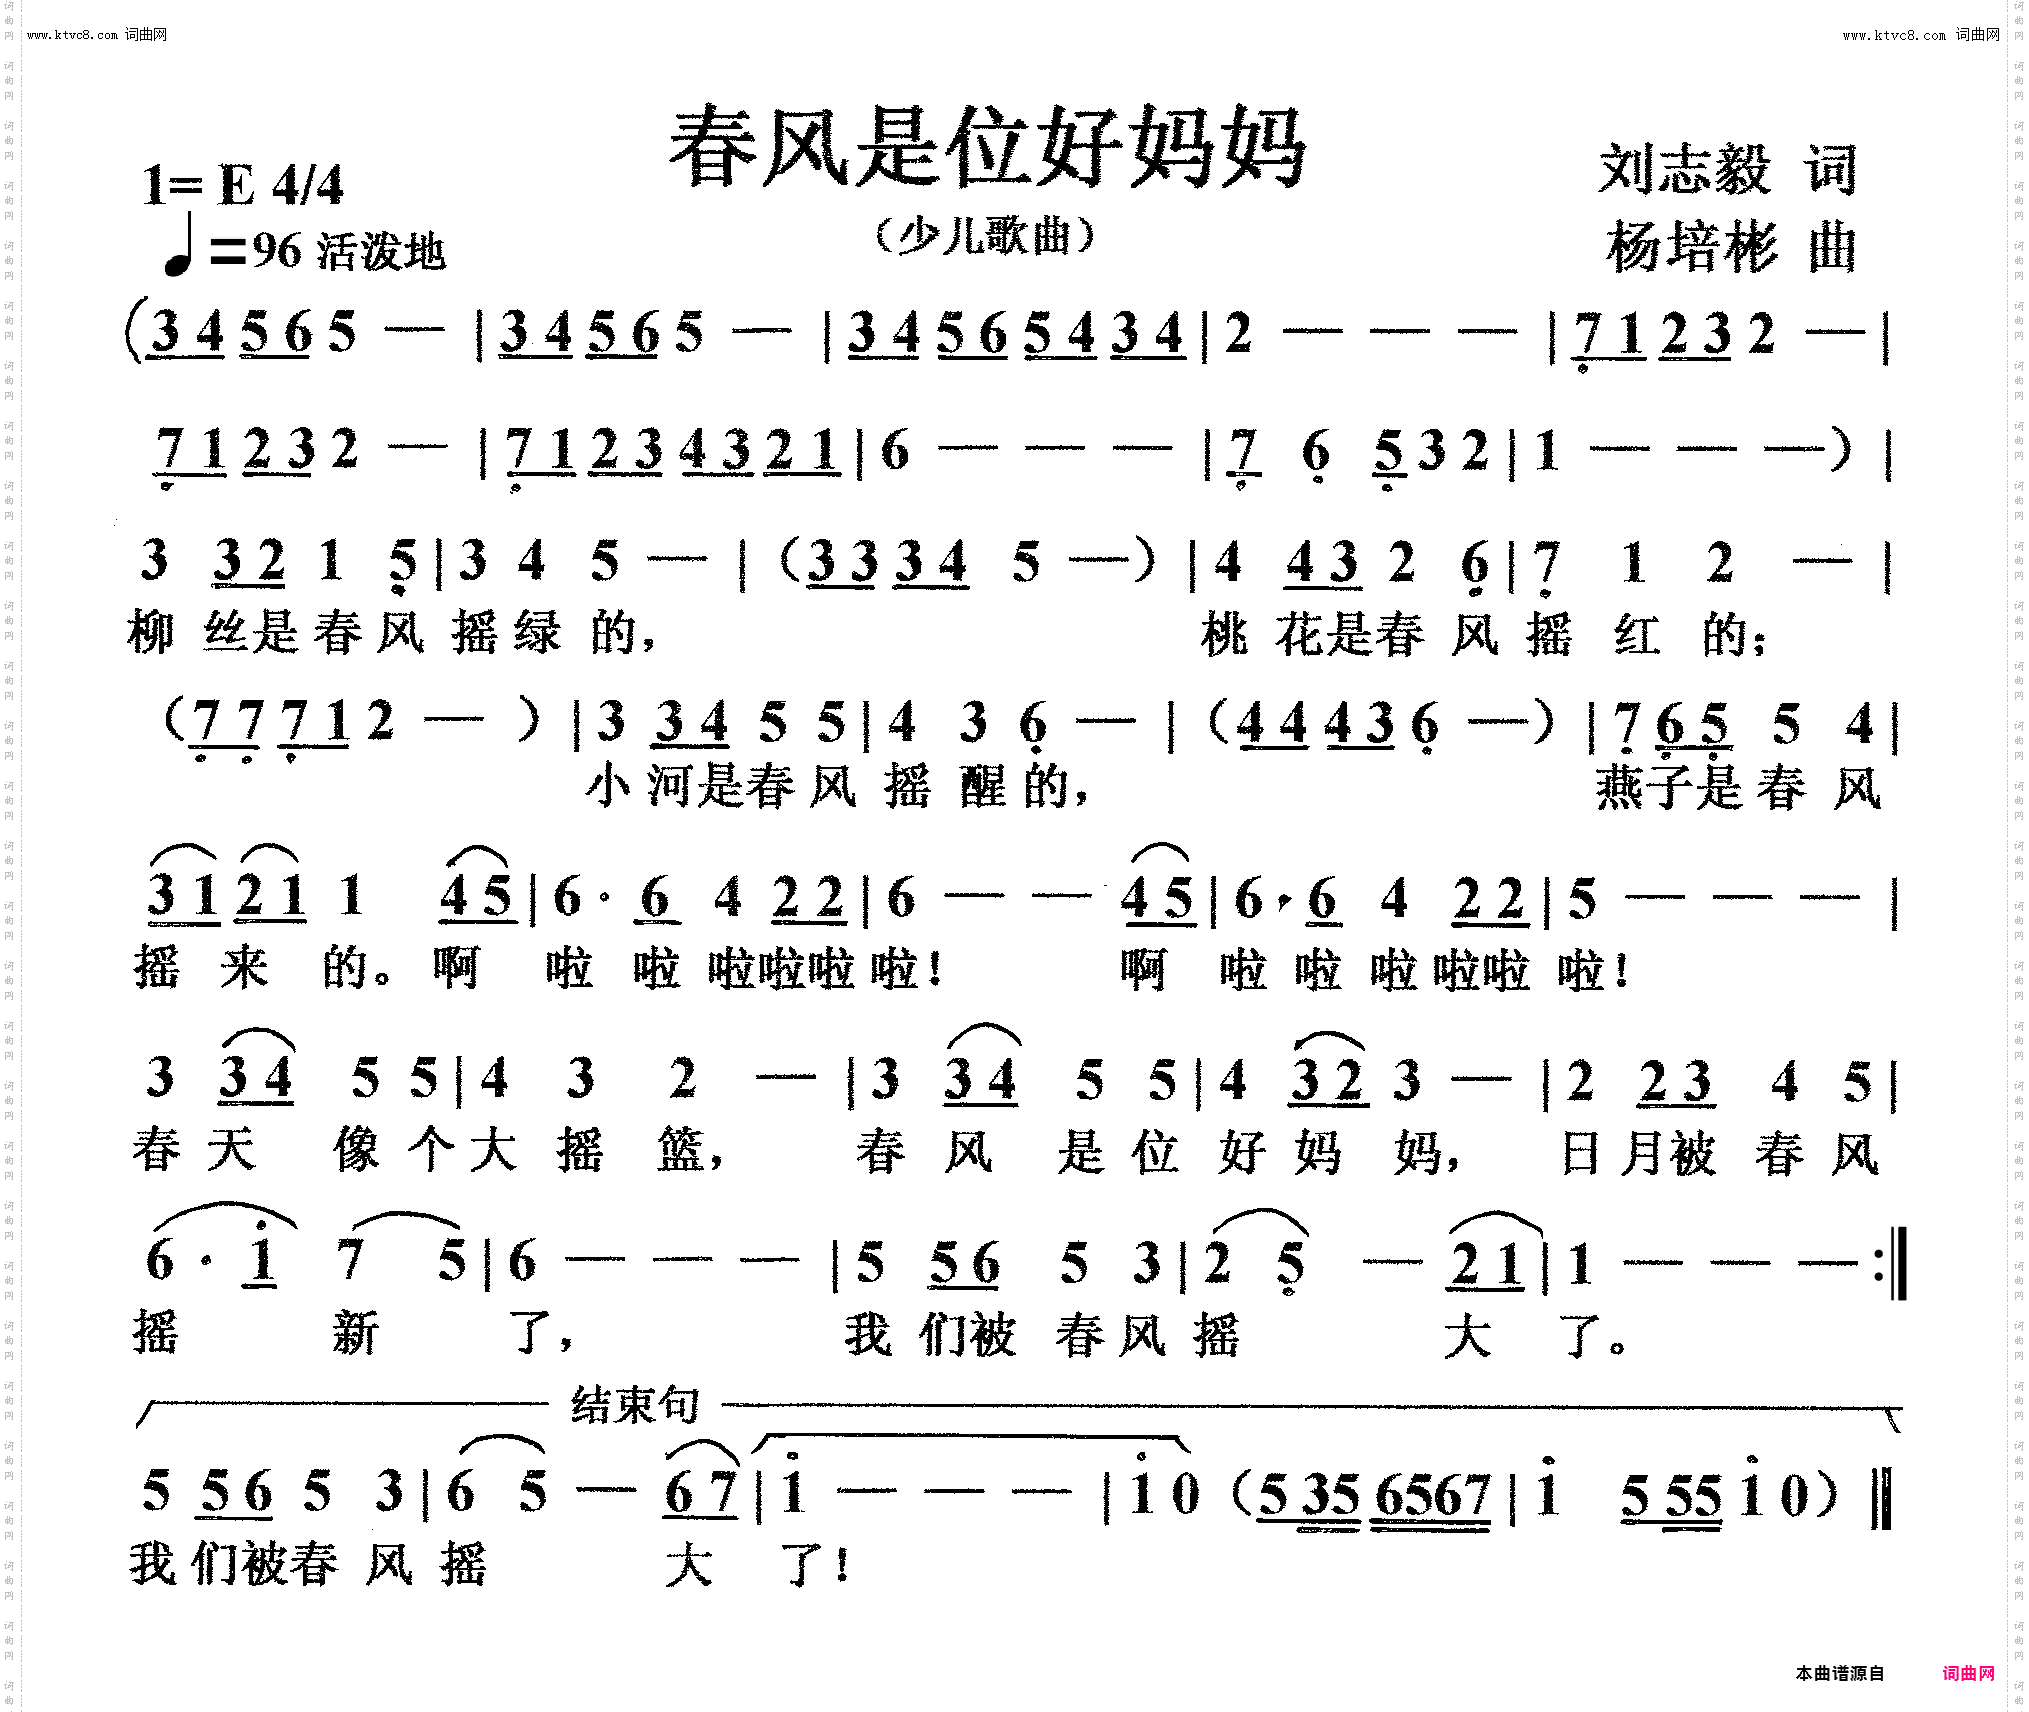 www.ktvc8.com 词曲网
www.ktvc8.com 词曲网
春风是位好妈妈
(少儿歌曲)
1= E 4/4
♩=96 活泼地
刘志毅 词
杨培彬 曲
(3 4 5 6 5 — | 3 4 5 6 5 — | 3 4 5 6 5 4 3 4 | 2 — — — | 7̣ 1 2 3 2 — |
7̣ 1 2 3 2 — | 7̣ 1 2 3 4 3 2 1 | 6 — — — | 7̣ 6̣ 5̣ 3 2 | 1 — — —) |
3 3 2 1 5̣ | 3 4 5 — | (3 3 3 4 5 —) | 4 4 3 2 6̣ | 7̣ 1 2 — |
柳 丝是春 风 摇 绿 的, 桃 花是春 风 摇 红 的;
(7̣ 7̣ 7̣ 1 2 — ) | 3 3 4 5 5 | 4 3 6̣ — | (4 4 4 3 6̣ —) | 7̣ 6̣ 5̣ 5 4 |
小 河是春 风 摇 醒 的, 燕子是 春 风
3 1 2 1 1 4 5 | 6 · 6 4 2 2 | 6 — — 4 5 | 6 · 6 4 2 2 | 5 — — — |
摇 来 的。 啊 啦 啦 啦啦啦 啦! 啊 啦 啦 啦 啦啦 啦!
3 3 4 5 5 | 4 3 2 — | 3 3 4 5 5 | 4 3 2 3 — | 2 2 3 4 5 |
春 天 像 个 大 摇 篮, 春 风 是 位 好 妈 妈, 日 月被 春 风
6 · i̇ 7 5 | 6 — — — | 5 5 6 5 3 | 2 5̣ — 2 1 | 1 — — — :‖
摇 新 了, 我 们被 春 风 摇 大 了。
结束句
5 5 6 5 3 | 6 5 — 6 7 | i̇ — — — | i̇ 0 (5 35 6567 | i̇ 5 55 i̇ 0) ‖
我 们被春 风 摇 大 了!
本曲谱源自 词曲网